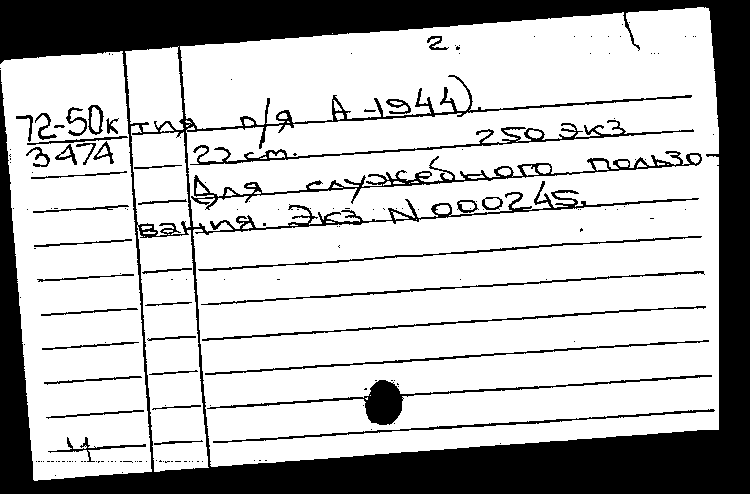 2.
72-50к тия п/я А-1944).
3474 22 cm. 250 экз
Для служебного пользо-
вания. Экз. N 000245.
ч